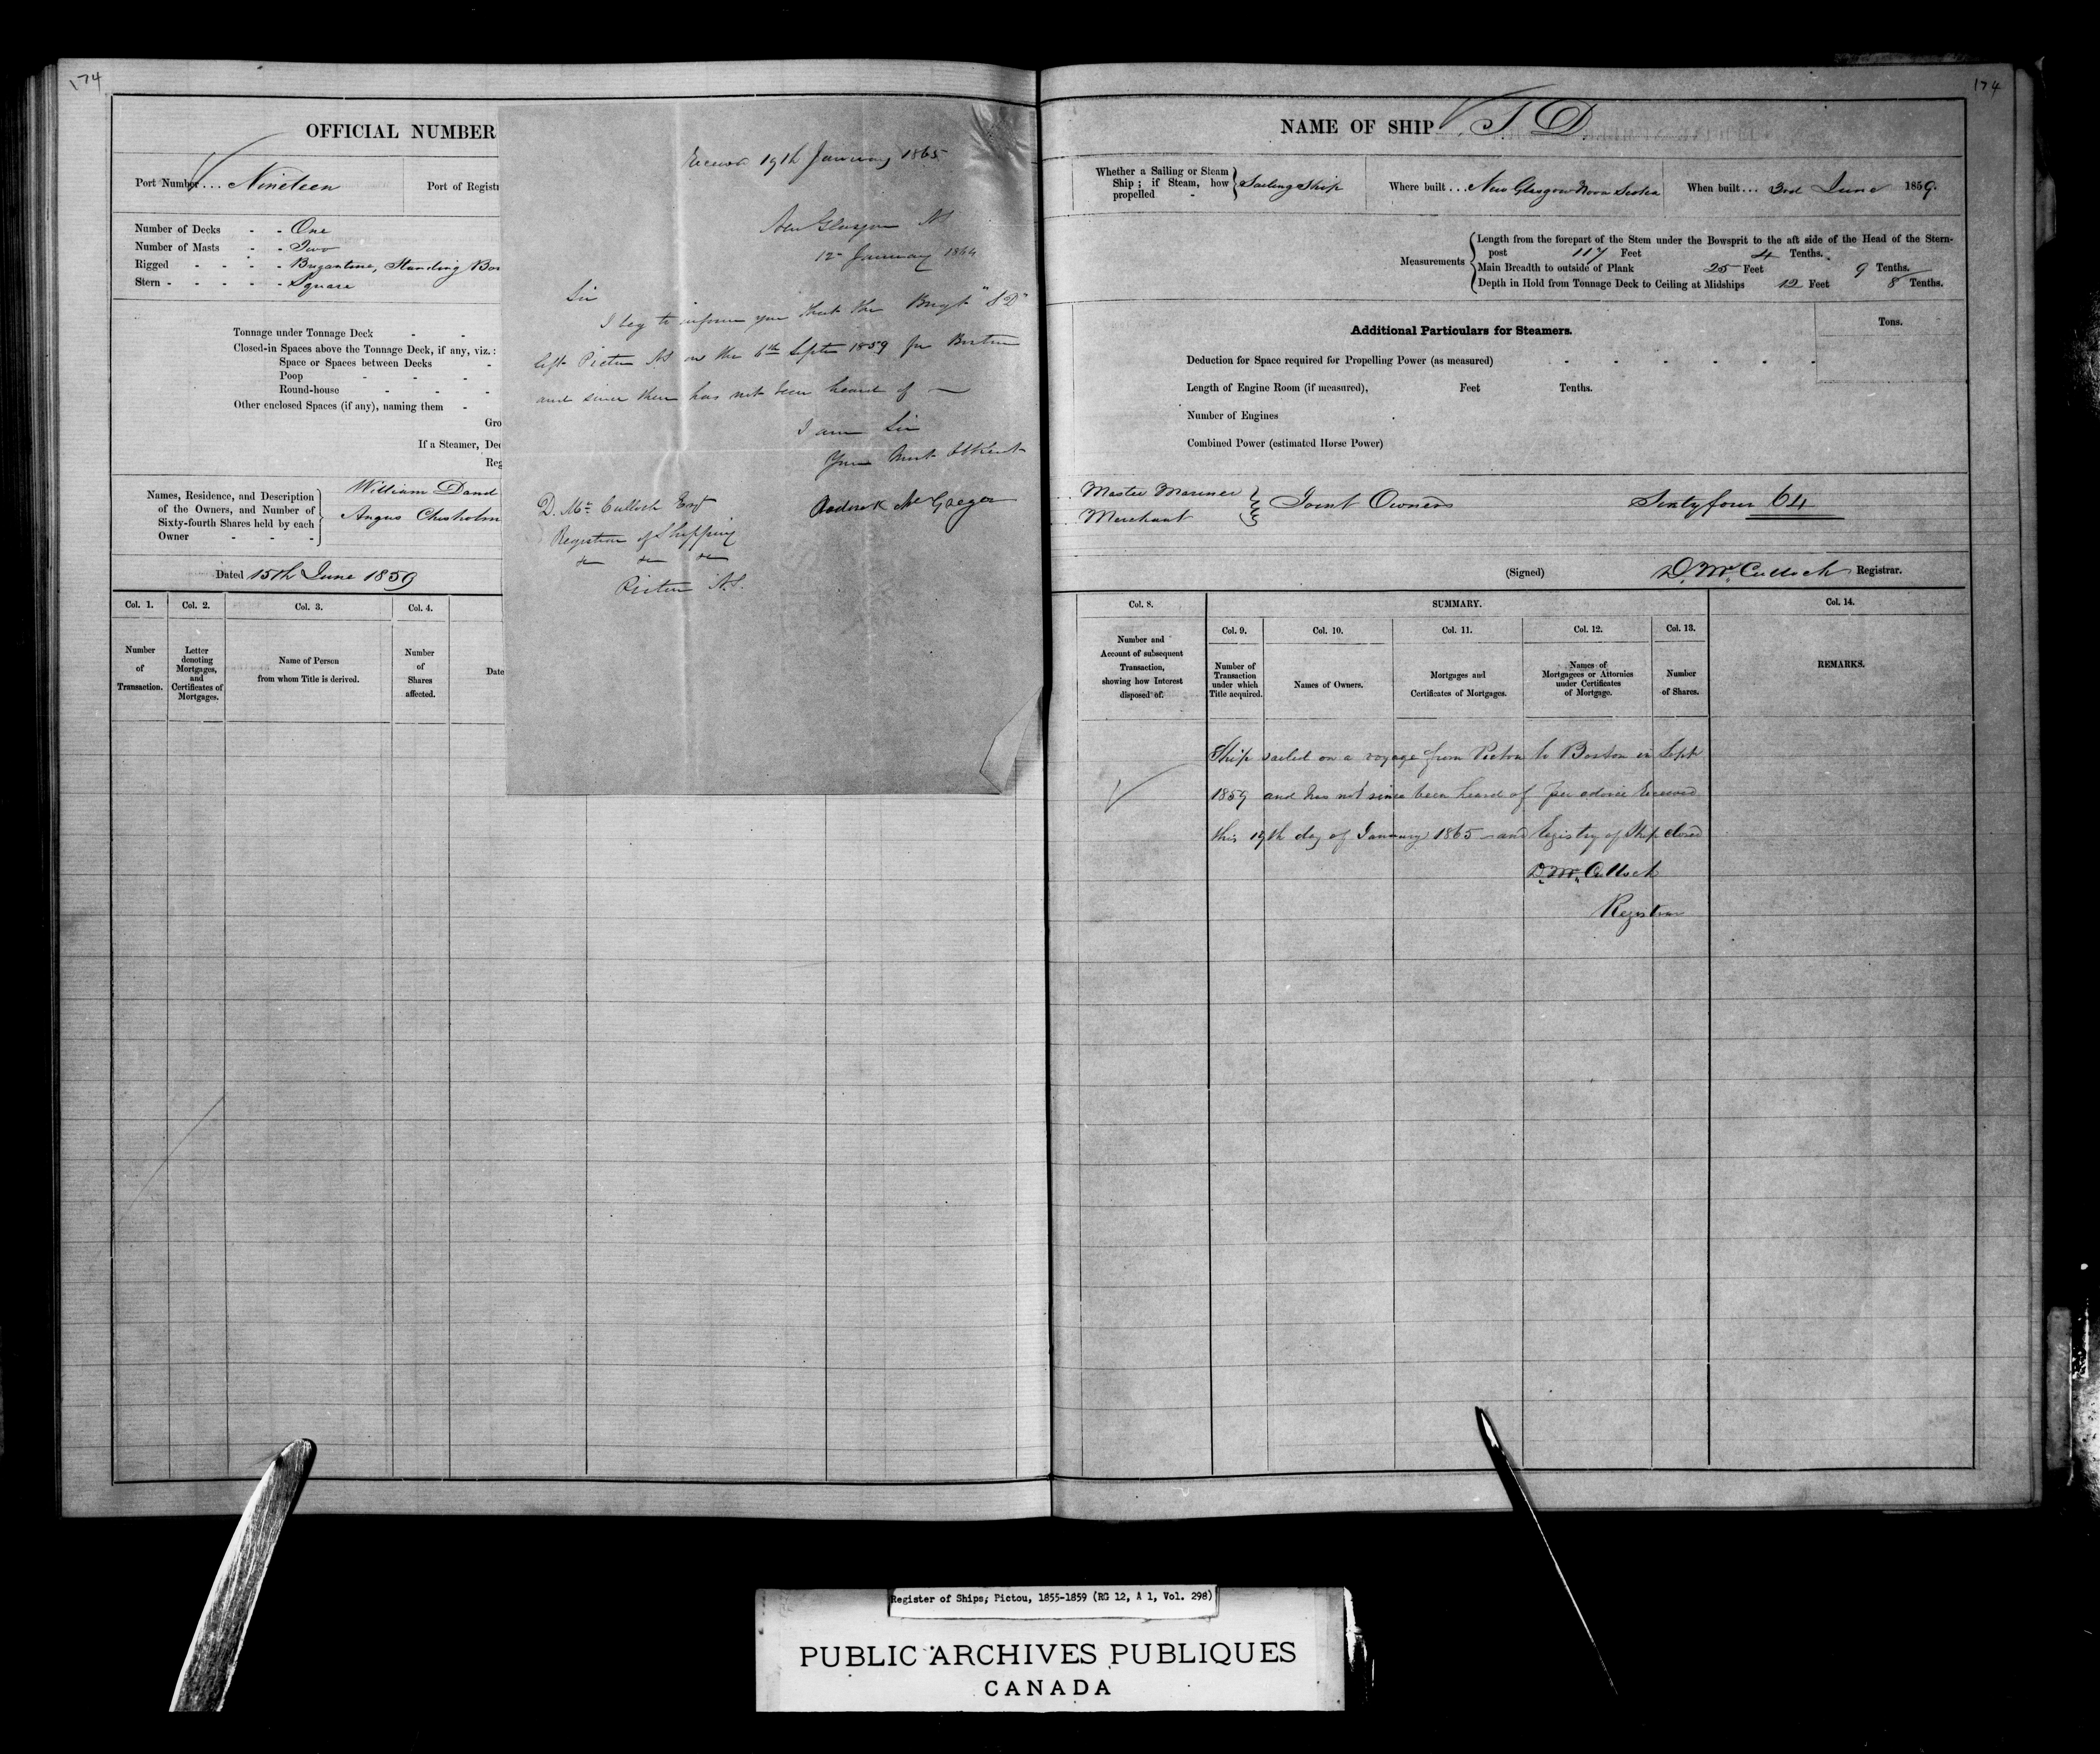 174
OFFICIAL NUMBER
Port Number ... Nineteen
Port of Regist
Number of Decks - - One
Number of Masts - - Two
Rigged - - - - Brigantine, Standing Bow
Stern - - - - - Square
Tonnage under Tonnage Deck - -
Closed-in Spaces above the Tonnage Deck, if any, viz.:
Space or Spaces between Decks -
Poop - - - -
Round-house - - - -
Other enclosed Spaces (if any), naming them -
Gro
If a Steamer, Dec
Reg
Names, Residence, and Description
of the Owners, and Number of
Sixty-fourth Shares held by each
Owner - - -
William Dand
Angus Chisholm
Dated 15th June 1859
Col. 1. Col. 2. Col. 3. Col. 4.
Number
of
Transaction.
Letter
denoting
Mortgages,
and
Certificates of
Mortgages.
Name of Person
from whom Title is derived.
Number
of
Shares
affected.
Date
Received 19th January 1865
New Glasgow NS
12th January 1864
Sir
I beg to inform you that the Brigt "S D"
left Pictou NS on the 6th Septr 1859 for Boston
and since then has not been heard of —
I am Sir
Your Most Obt
Roderick McGregor
D. McCulloch Esq
Registrar of Shipping
&c &c &c
Pictou N.S.
174
NAME OF SHIP
Whether a Sailing or Steam
Ship; if Steam, how
propelled -
Sailing Ship
Where built ... New Glasgow Nova Scotia
When built ... 3rd June 1859.
Measurements
Length from the forepart of the Stem under the Bowsprit to the aft side of the Head of the Stern-
post 117 Feet 4 Tenths.
Main Breadth to outside of Plank 25 Feet 9 Tenths.
Depth in Hold from Tonnage Deck to Ceiling at Midships 12 Feet 8 Tenths.
Additional Particulars for Steamers.
Tons.
Deduction for Space required for Propelling Power (as measured) - - - - - -
Length of Engine Room (if measured), Feet Tenths.
Number of Engines
Combined Power (estimated Horse Power)
Master Mariner
Merchant
Joint Owners
Sixty four 64
(Signed) D. McCulloch Registrar.
Col. 8.
Number and
Account of subsequent
Transaction,
showing how Interest
disposed of.
SUMMARY.
Col. 9. Col. 10. Col. 11. Col. 12. Col. 13.
Number of
Transaction
under which
Title acquired.
Names of Owners.
Mortgages and
Certificates of Mortgages.
Names of
Mortgagees or Attornies
under Certificates
of Mortgage.
Number
of Shares.
Col. 14.
REMARKS.
Ship sailed on a voyage from Pictou to Boston in Sept
1859 and has not since been heard of per advice Received
this 19th day of January 1865 — and Registry of Ship closed
D. McCulloch
Registrar
Register of Ships; Pictou, 1855-1859 (RG 12, A 1, Vol. 298)
PUBLIC ARCHIVES PUBLIQUES
CANADA